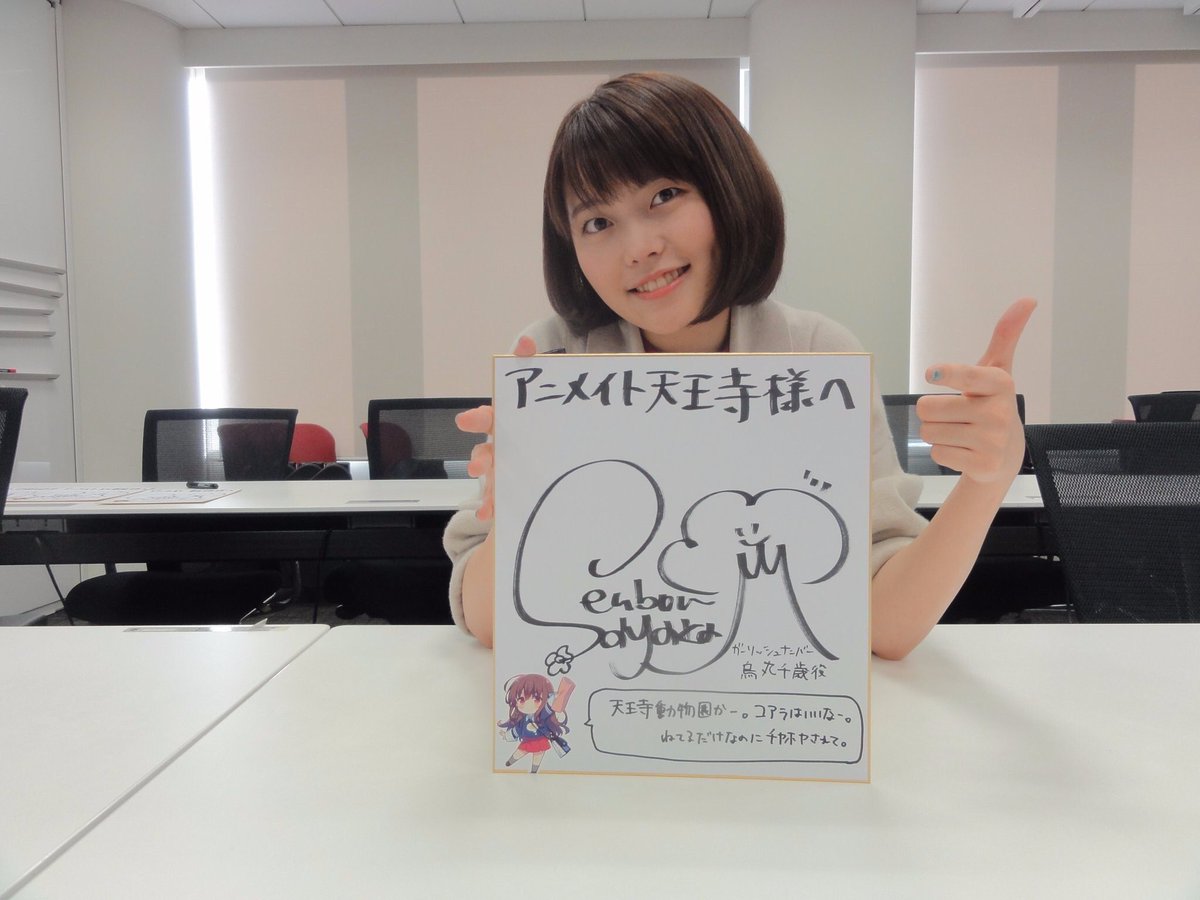 アニメイト天王寺様へ
Senbon
Sayaka
ガーリッシュナンバー
烏丸千歳役
天王寺動物園かー。コアラはいいなー。
ねてるだけなのにチヤホヤされて。